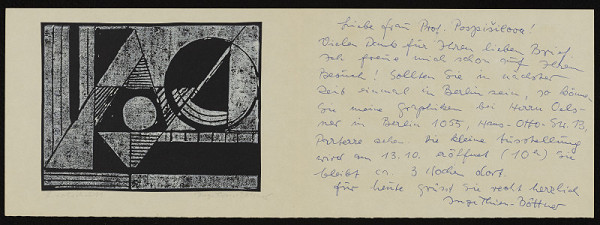 Liebe Frau Prof. Pospíšilova!
Vielen Dank für Ihren lieben Brief.
Ich freue mich schon auf Ihren
Besuch! Sollten Sie in nächster
Zeit einmal in Berlin sein, so können
Sie meine Graphiken bei Herrn Oels-
ner in Berlin 1055, Hans-Otto-Str.
Parterre sehen. Die kleine Ausstellung
wird am 13.10. eröffnet (10h) Sie
bleibt ca. 3 Wochen dort.
Für heute grüßt Sie recht herzlich
Inge Thiess-Böttner